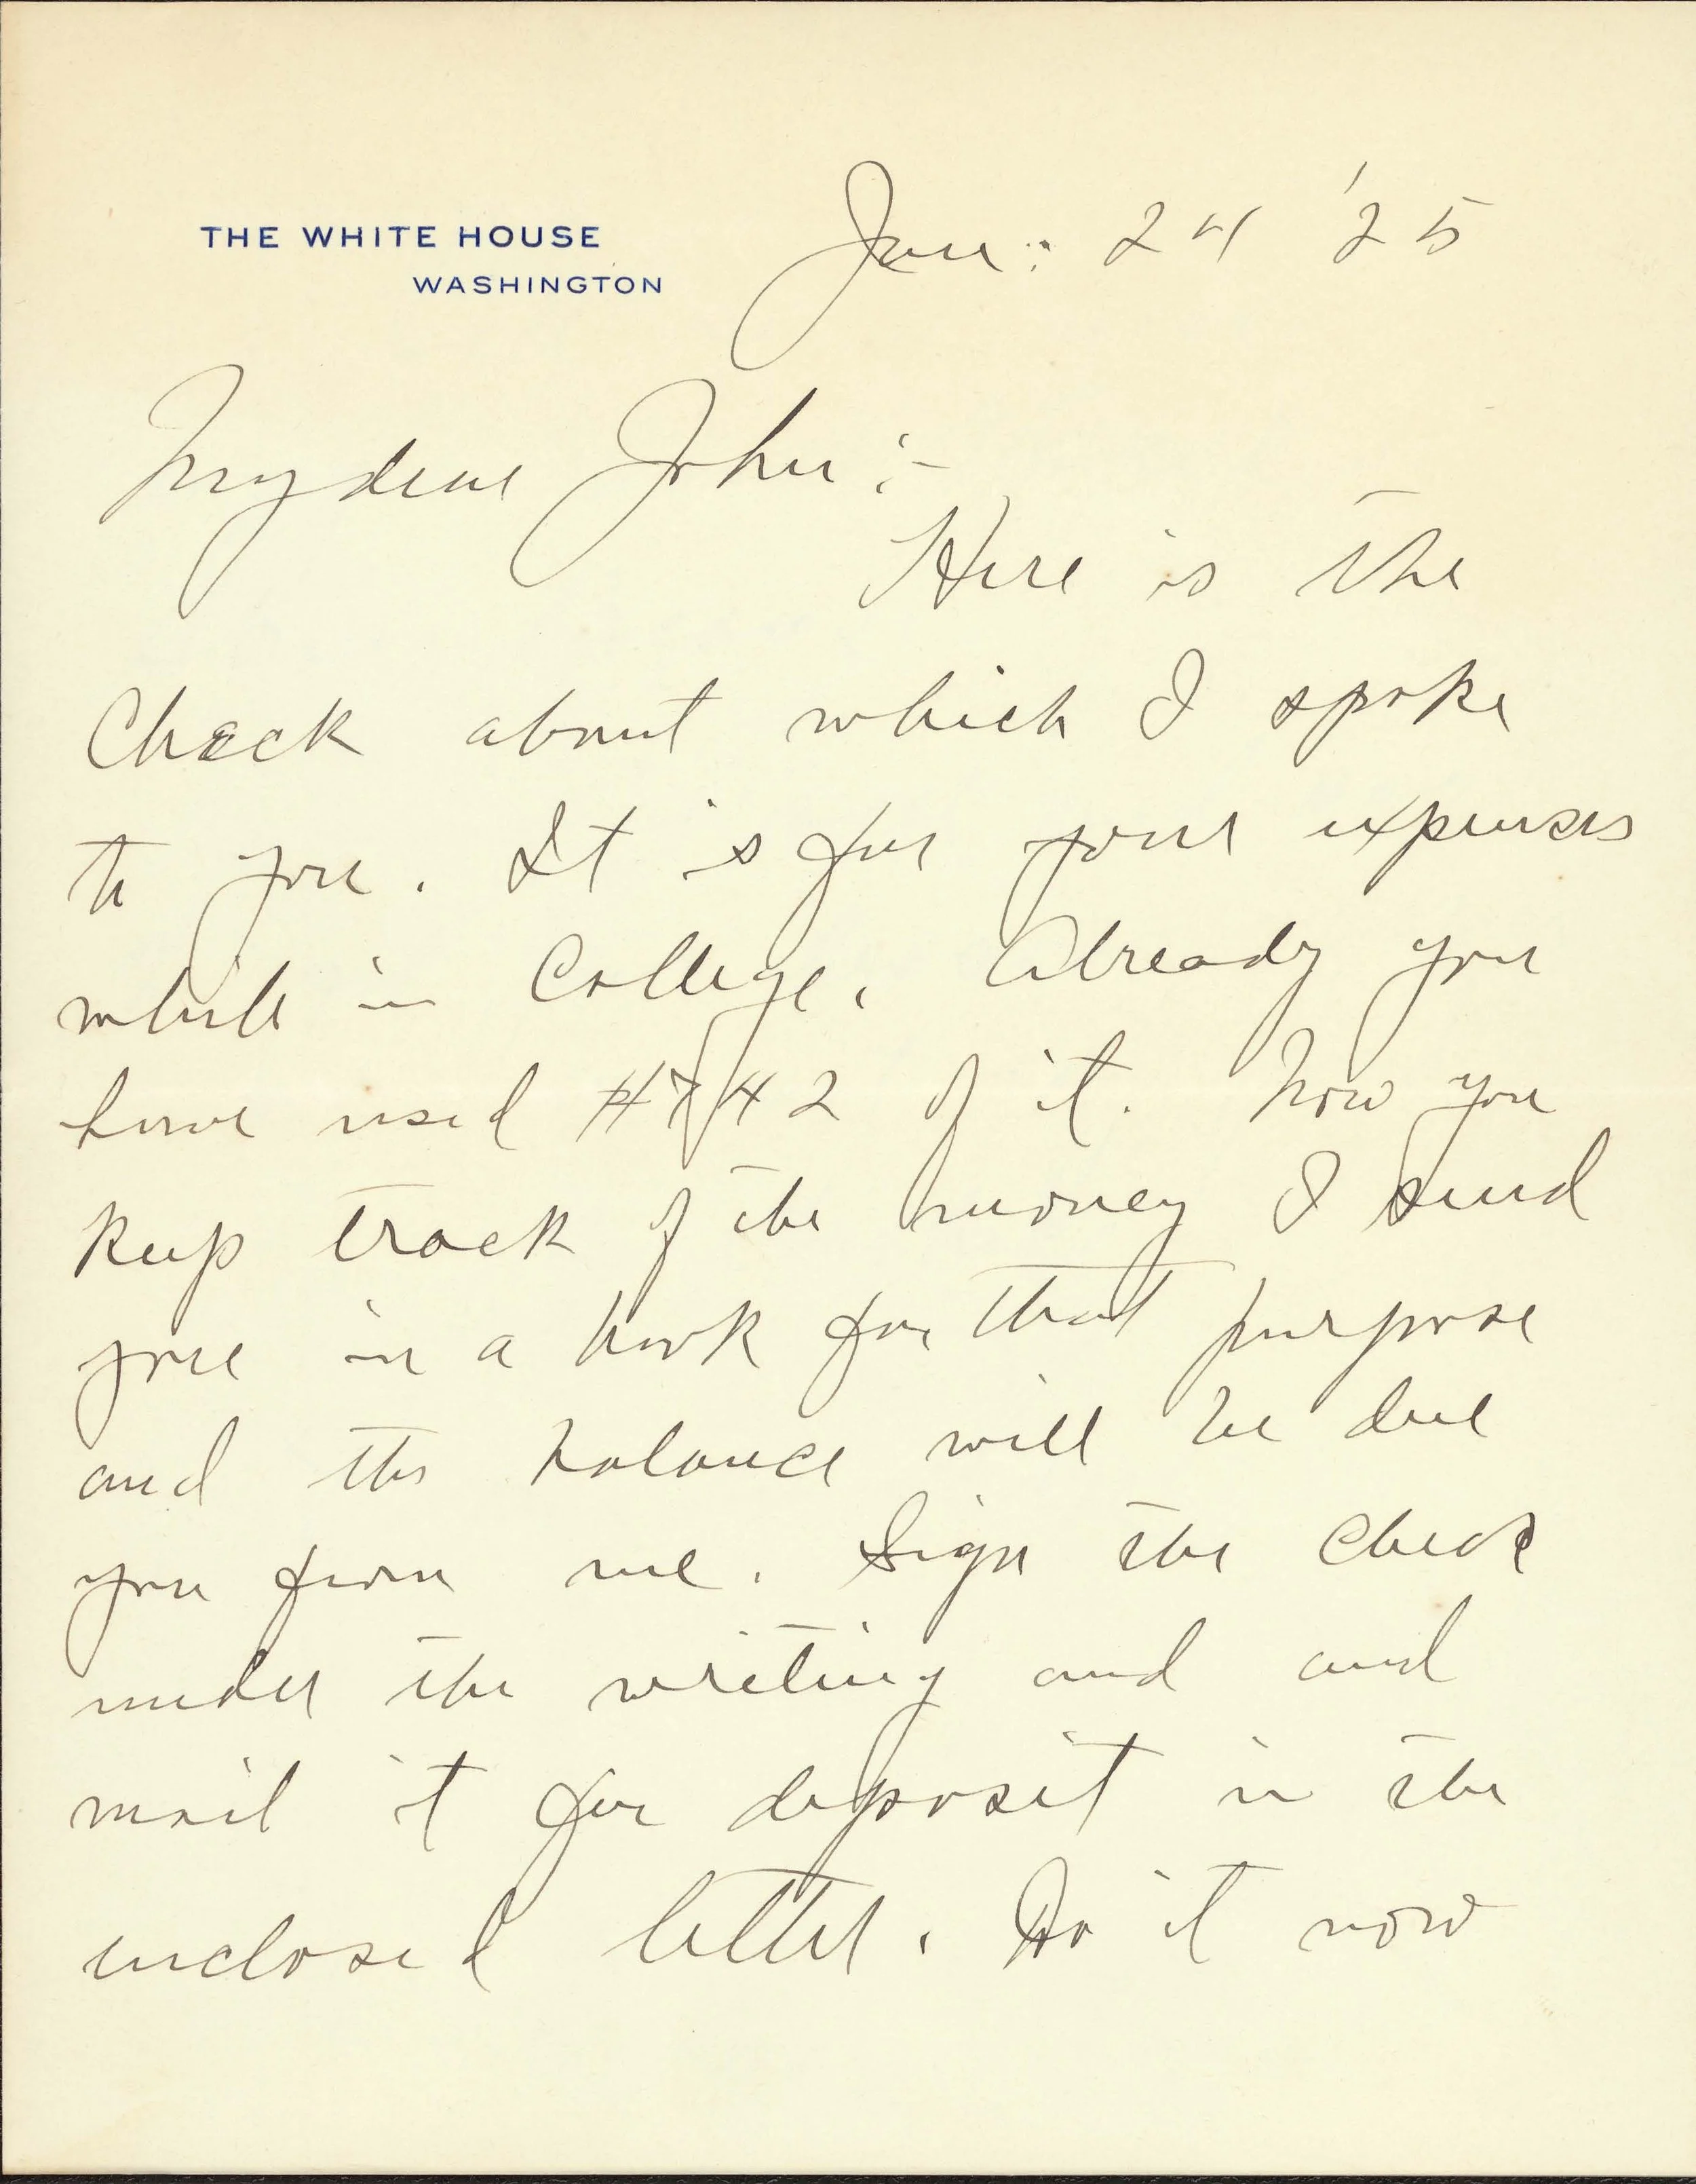 THE WHITE HOUSE
WASHINGTON
Jan: 24 '25
My dear John:-
Here is the
Check about which I spoke
to you. It is for your expenses
while in College. Already you
have used #742 of it. Now you
keep track of the money I send
you in a book for that purpose
and the balance will be due
you from me. Sign the check
under the writing and and
mail it for deposit in the
enclosed letter. Do it now